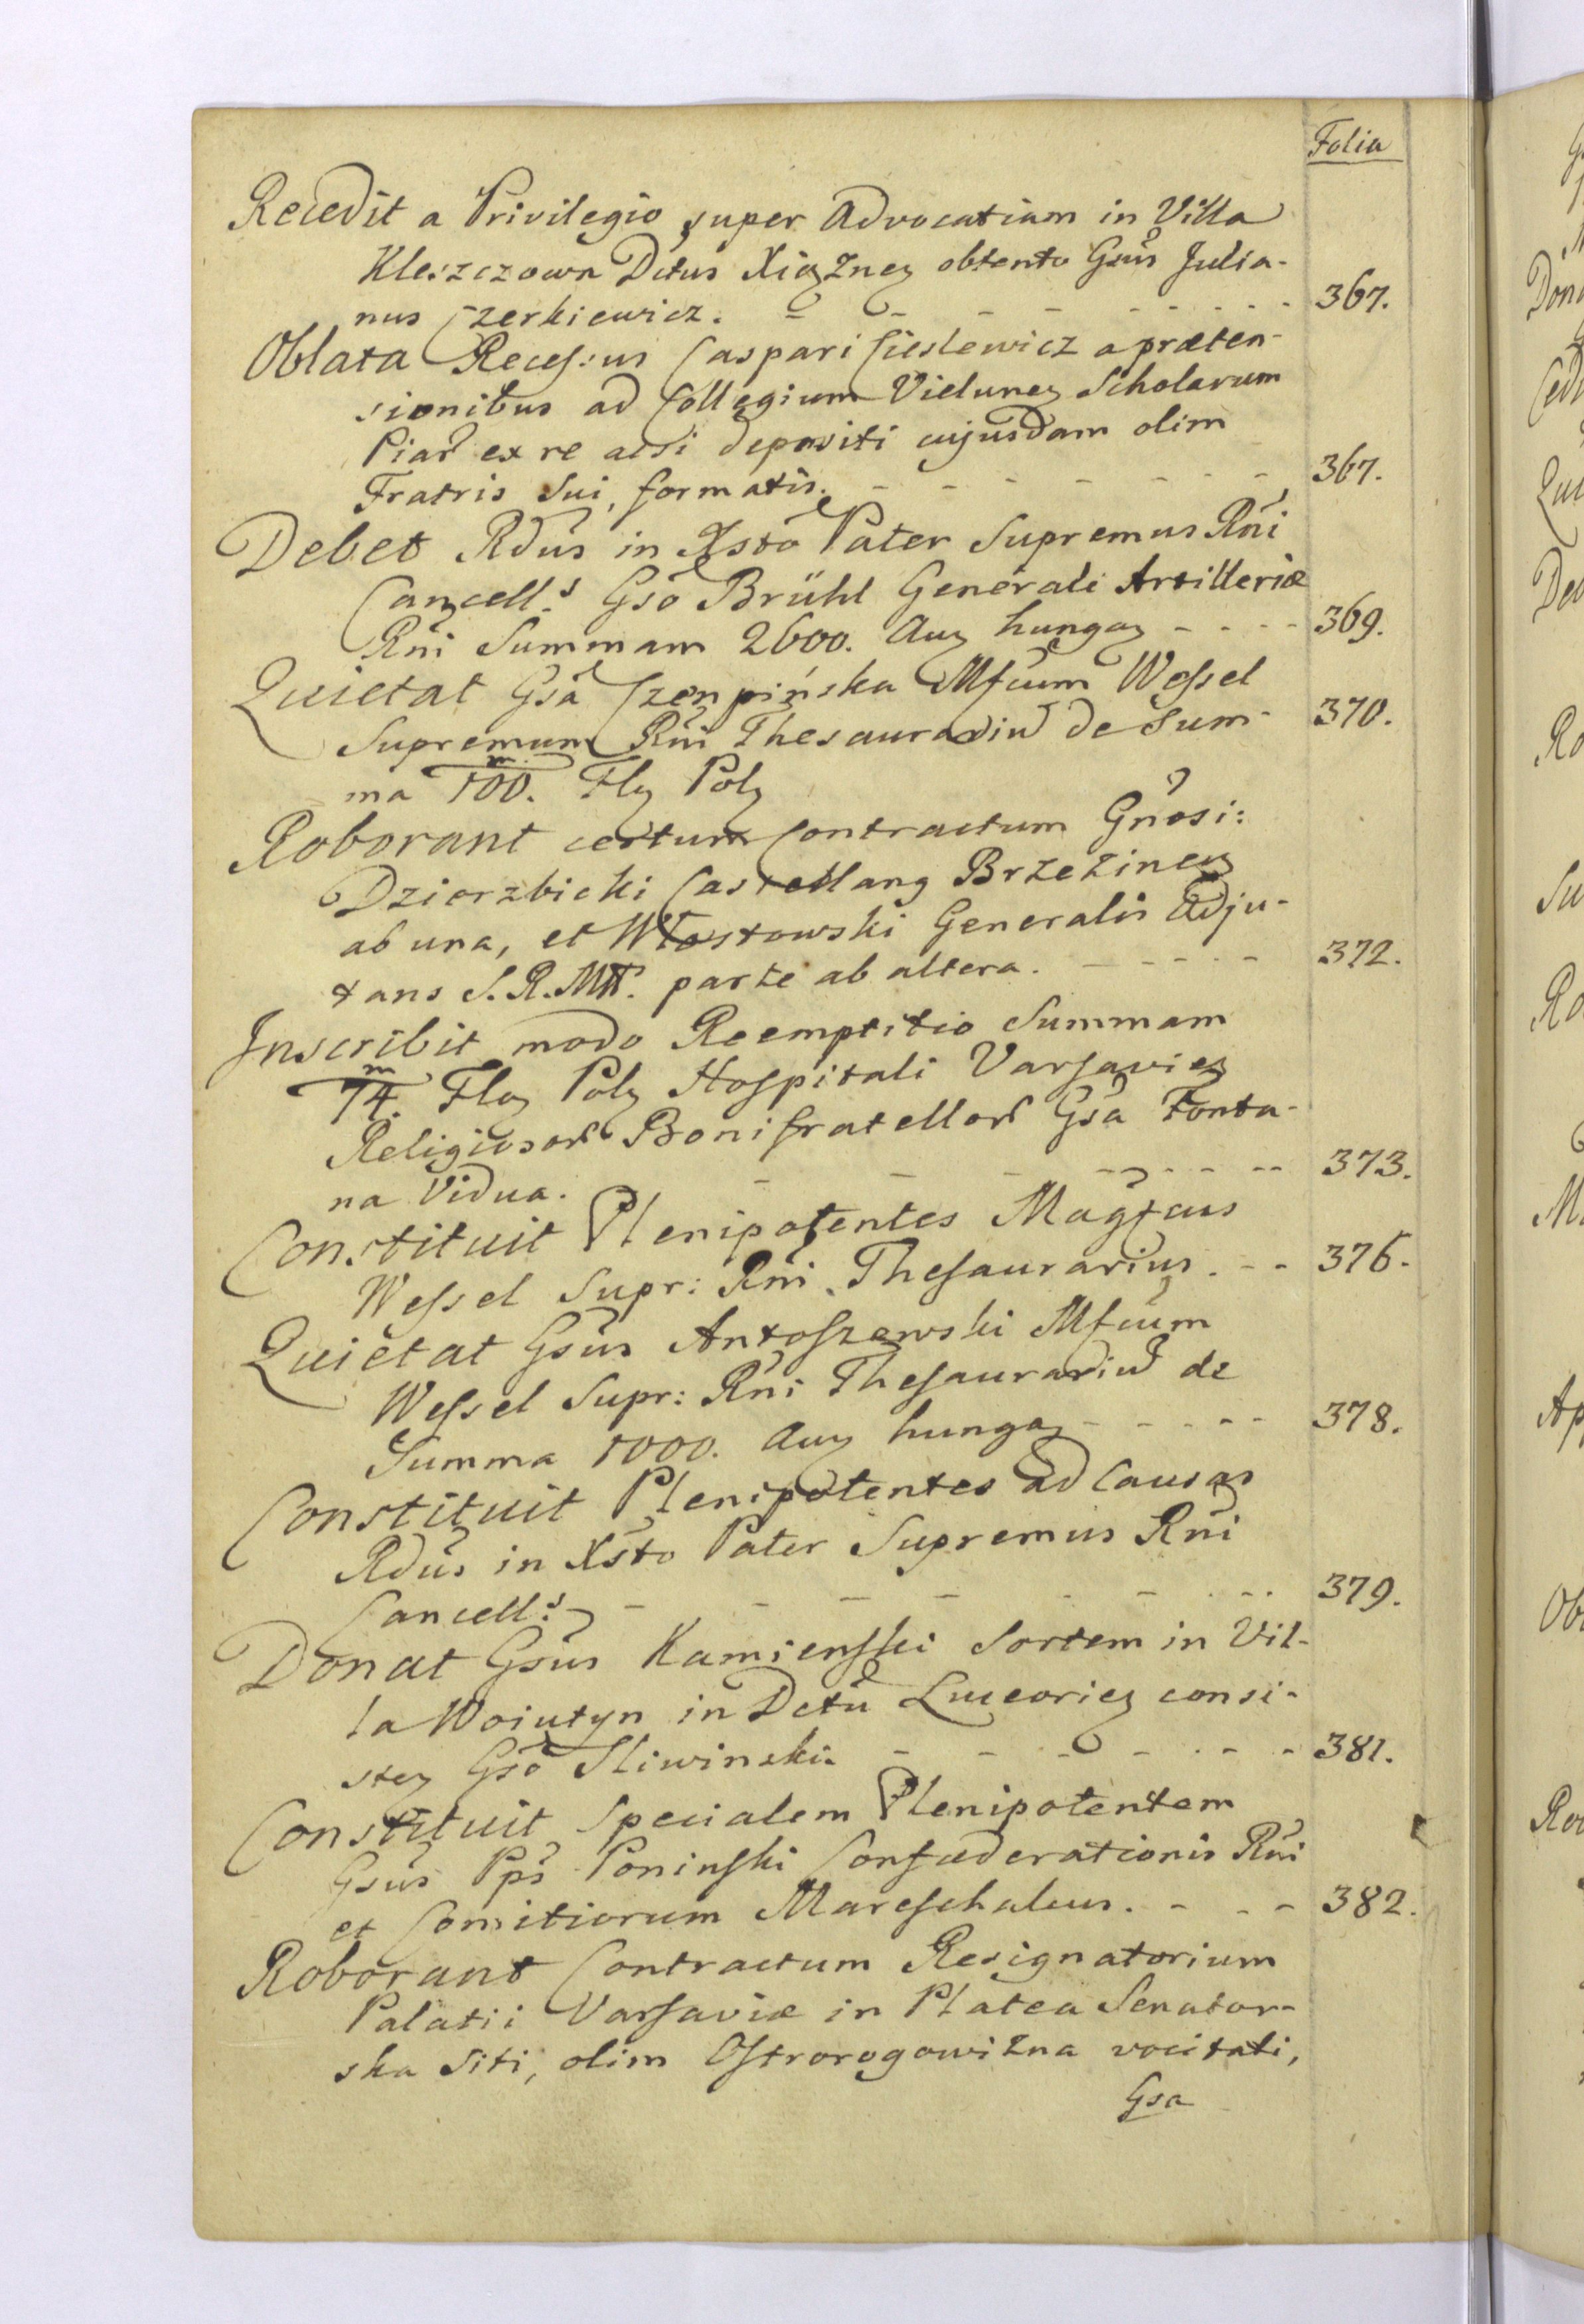 Folia
Recedit a Privilegio super Advocatiam in Villa
Kleszczowa Dctus Xiązneÿ obtento Gsūs Julia-
nus Czerkiewicz. - - - - - - - - 367.
Oblata Recessus Caspari Cieslewicz a præten-
sionibus ad Collegium Vieluneÿ Scholarum
Piar ex re acsi depositi cujusdam olim
Fratris Sui, formatis. - - - - - - - 367.
Debet Rdūs in Xsto Pater Supremus Rni
Cancell:s Gso Brühl Generali Artilleriæ
Rni Summam 2600. Auÿ hungaÿ - - - - 369.
Quietat Gsa Czempińska Mfcum Wessel
Supremum Rni Thesaurariu de Sum- 370.
ma 100.m Flÿ Polÿ
Roborant certum Contractum Gnosi:
Dzierzbicki Castellanÿ Brzezineÿ
ab una, et Włostowski Generalis Adju-
tans S.R.Mtt. parte ab altera. - - - - - 372.
Inscribit modo Reemptitio Summam
74.m Floÿ Polÿ Hospitali Varsavieÿ
Religiosor Bonifratellor Gsa Fonta-
na Vidua. - - - - - - - - 373.
Constituit Plenipotentes Magfcus
Wessel Supr: Rni Thesaurarius. - - 376.
Quietat Gsūs Antoszewski Mfcum
Wessel Supr: Rni Thesaurariu de
Summa 1000. Auÿ hungaÿ - - - - - 378.
Constituit Plenipotentes ad Causas
Rdūs in Xsto Pater Supremus Rni
Cancell:s - - - - - - - - - 379.
Donat Gsūs Kamienski Sortem in Vil-
la Woiutyn in Dctu Luceorieÿ consi-
steÿ Gso Sliwinski. - - - - - - - 381.
Constituit Specialem Plenipotentem
Gsūs Pps Poninski Confœderationis Rni
et Comitiorum Mareschalcus. - - - 382.
Roborant Contractum Resignatorium
Palatii Varsaviæ in Platea Senator-
ska Siti, olim Ostrorogowizna vocitati,
Gsa